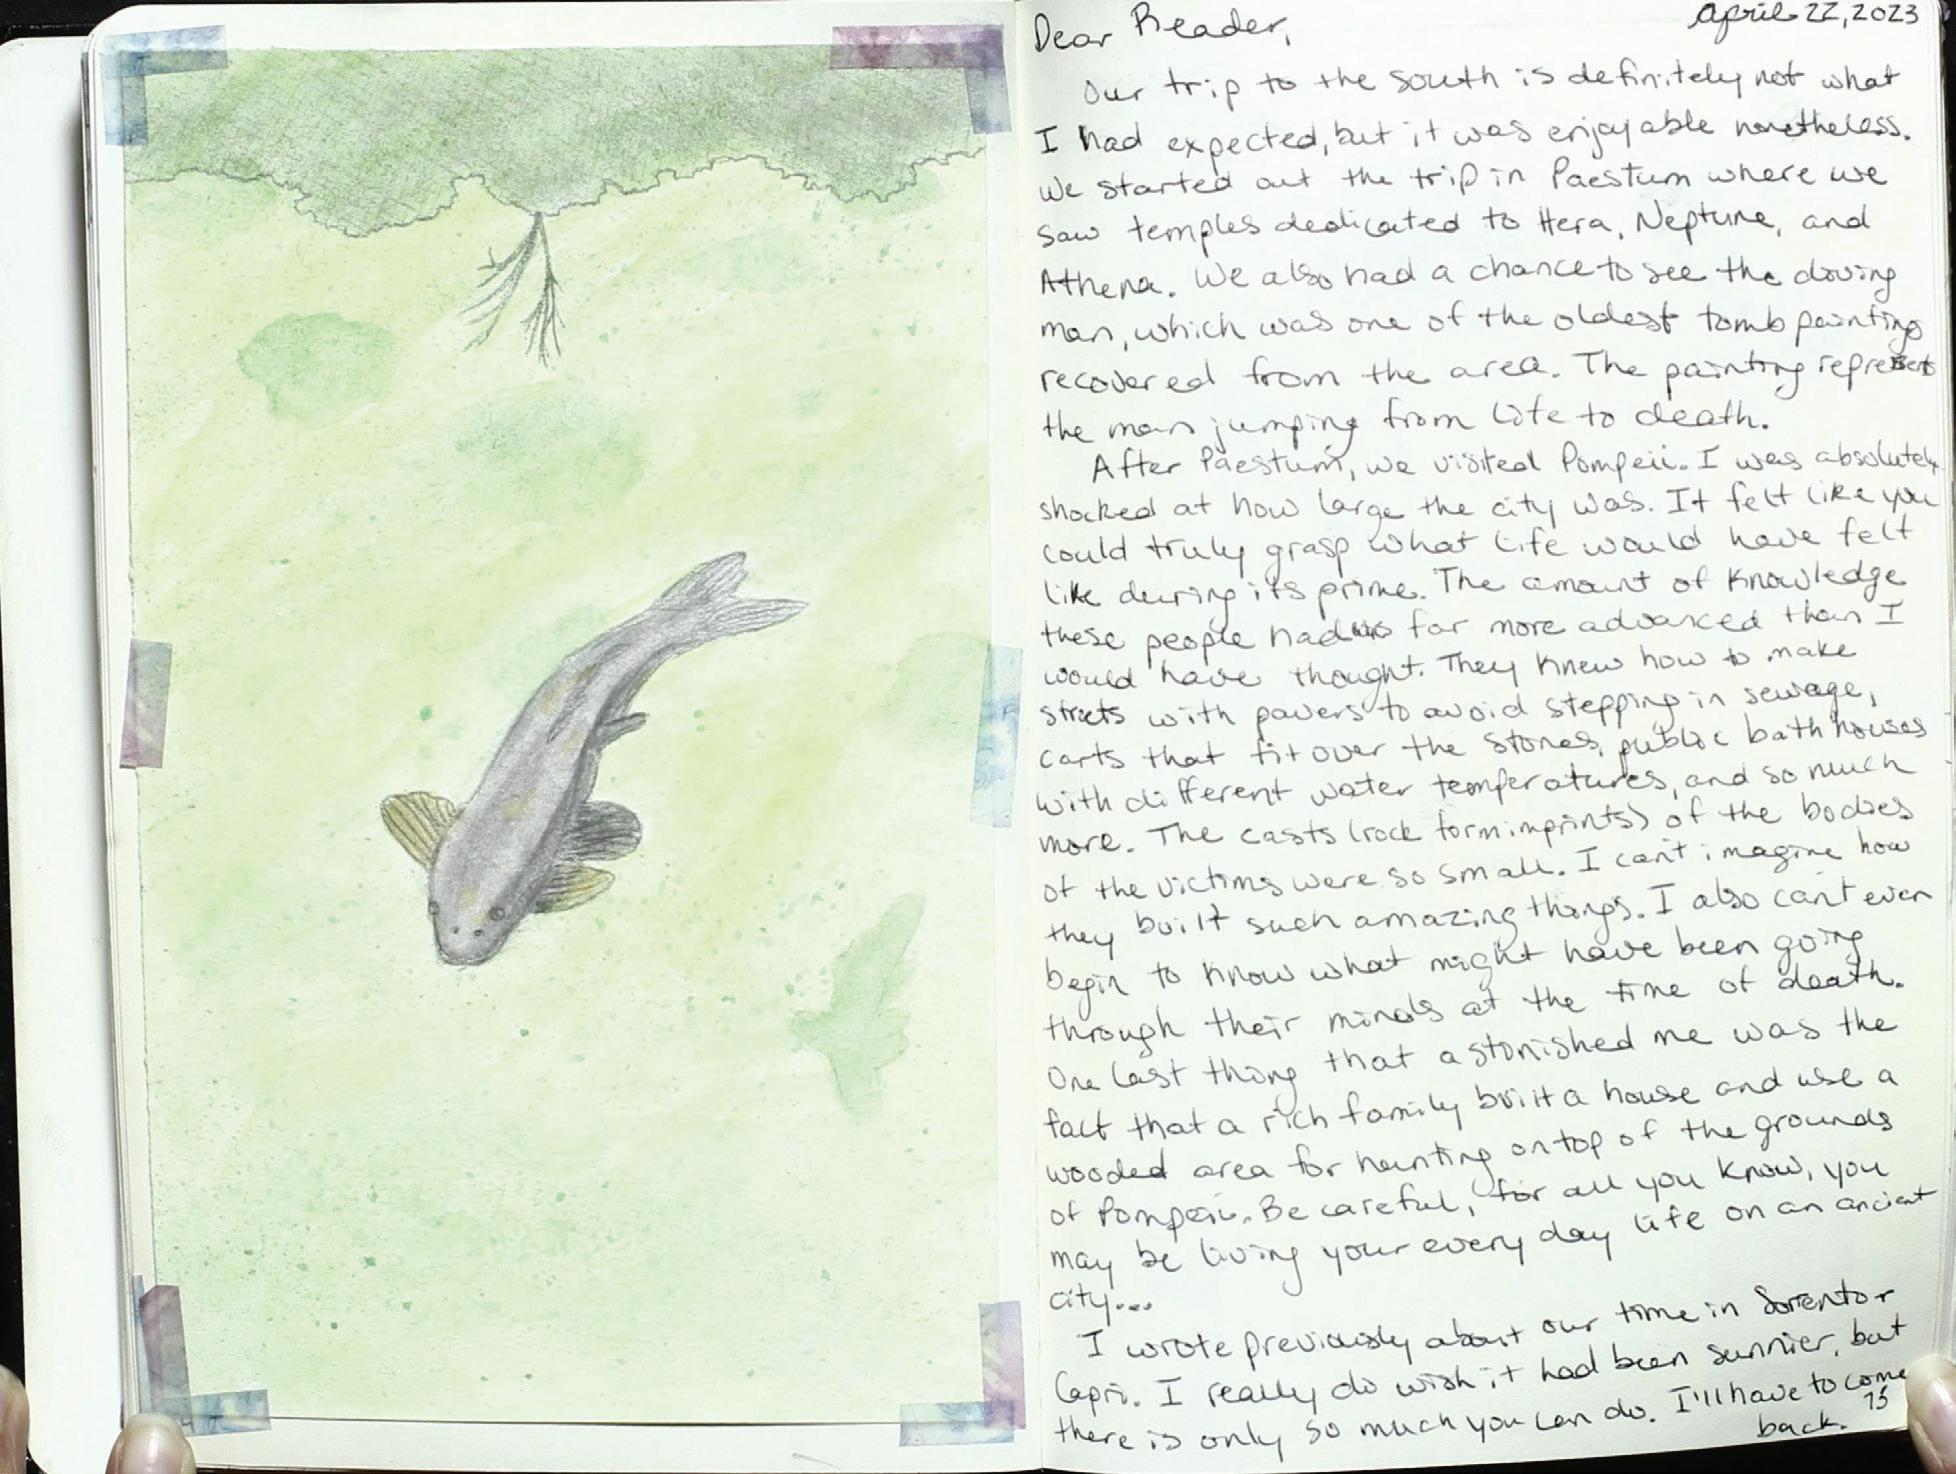 April 22, 2023
Dear Reader,
Our trip to the south is definitely not what
I had expected, but it was enjoyable nonetheless.
We started out the trip in Paestum where we
saw temples dedicated to Hera, Neptune, and
Athena. We also had a chance to see the diving
man, which was one of the oldest tomb paintings
recovered from the area. The painting represents
the man jumping from life to death.
After Paestum, we visited Pompeii. I was absolutely
shocked at how large the city was. It felt like you
could truly grasp what life would have felt
like during its prime. The amount of knowledge
these people had was far more advanced than I
would have thought. They knew how to make
streets with pavers to avoid stepping in sewage,
carts that fit over the stones, public bath houses
with different water temperatures, and so much
more. The casts (rock form imprints) of the bodies
of the victims were so small. I can't imagine how
they built such amazing things. I also can't even
begin to know what might have been going
through their minds at the time of death.
One last thing that astonished me was the
fact that a rich family built a house and use a
wooded area for hunting on top of the grounds
of Pompeii. Be careful, for all you know, you
may be living your every day life on an ancient
city...
I wrote previously about our time in Sorrento +
Capri. I really do wish it had been sunnier, but
there is only so much you can do. I'll have to come
back. 75